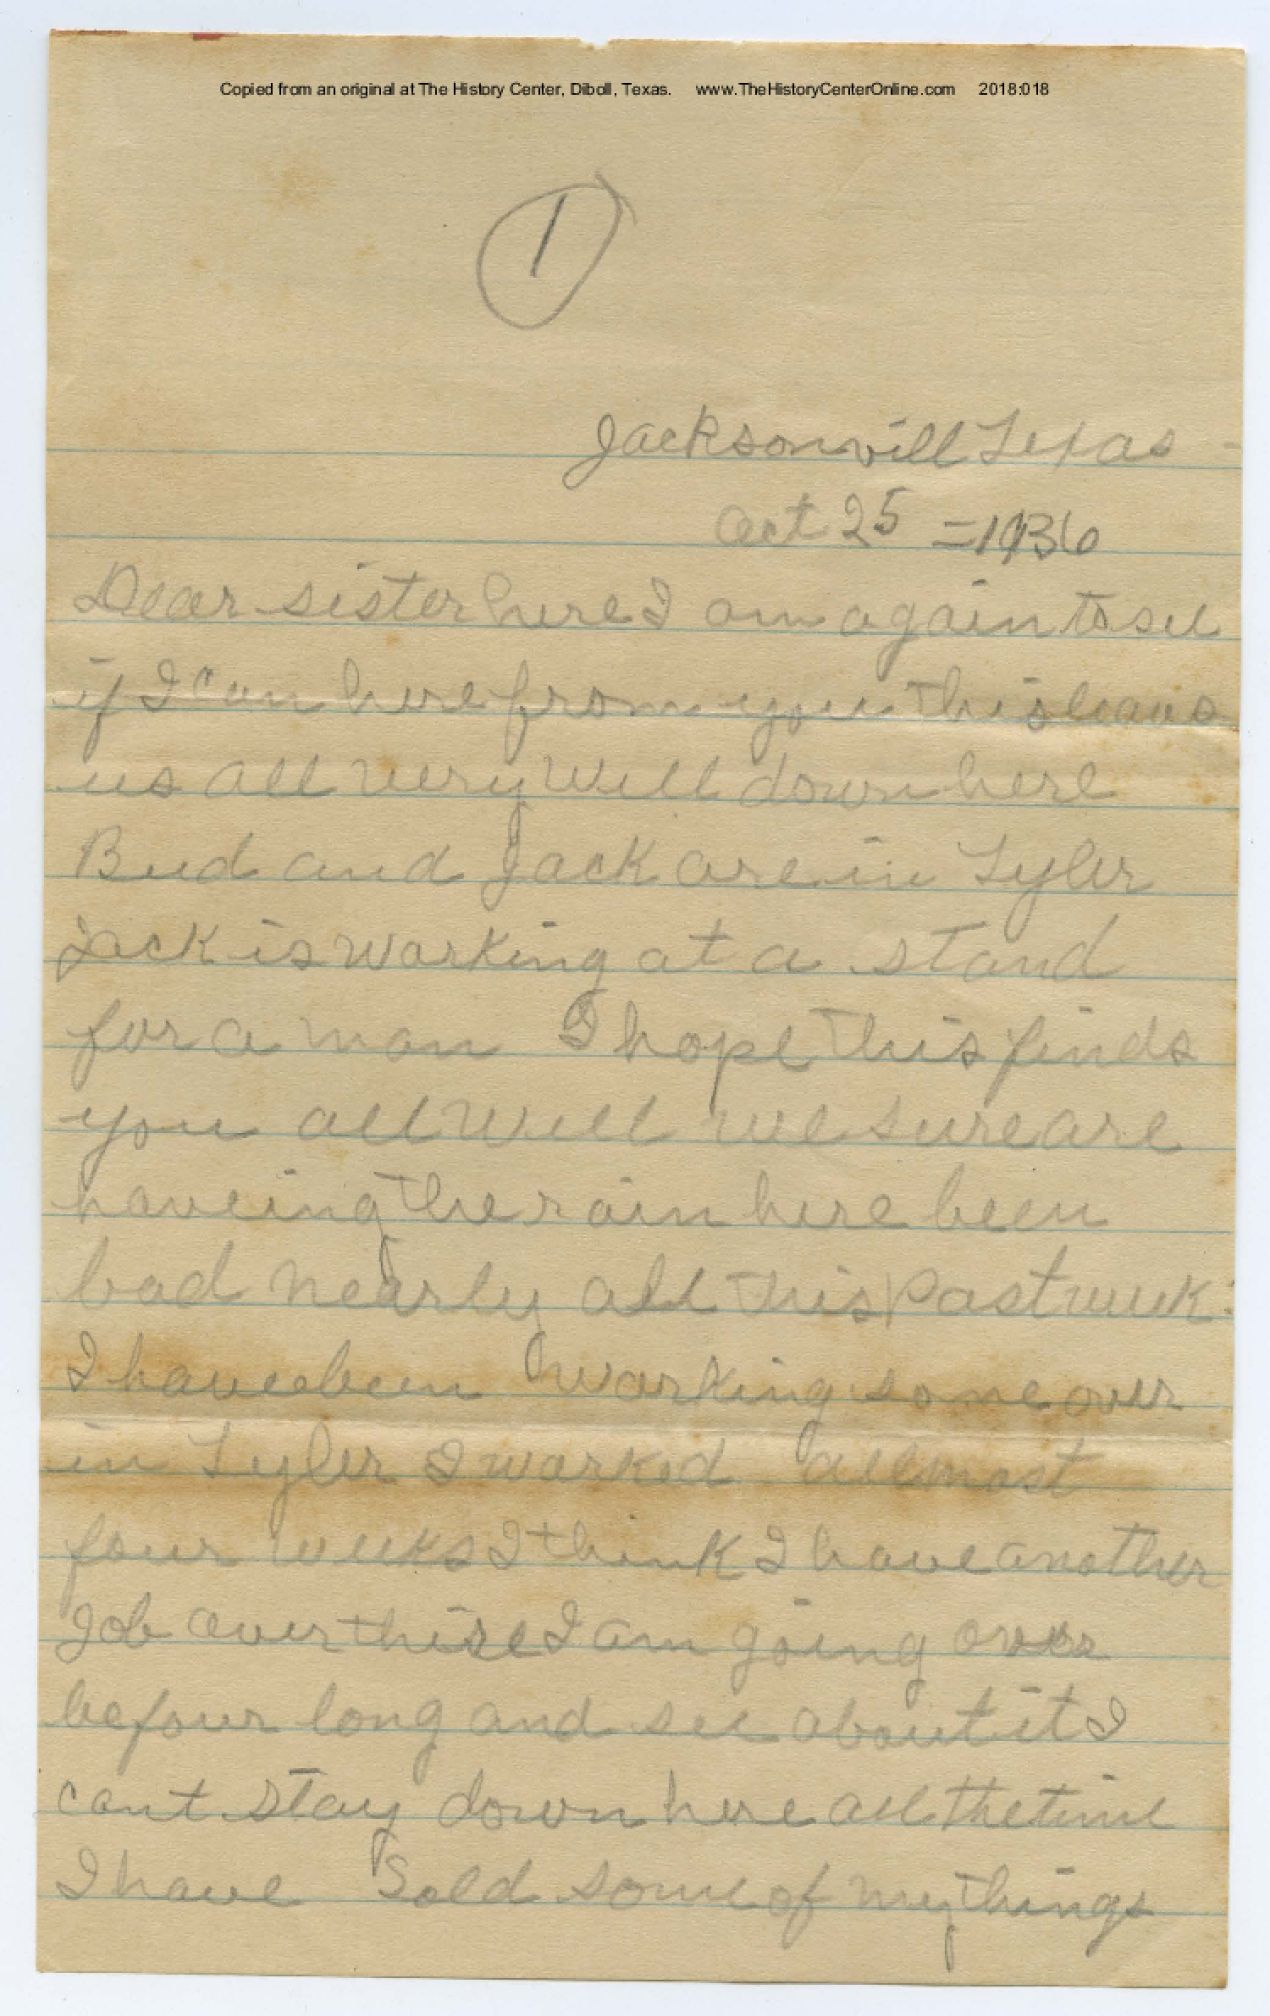 Copied from an original at The History Center, Diboll, Texas. www.TheHistoryCenterOnline.com 2018:018
1
Jacksonvill Texas
Oct 25 = 1936
Dear sister here I am again to see
if I can here from you this leaves
us all very well down here
Bud and Jack are in Tyler
Jack is working at a stand
for a man I hope this finds
you all well we sure are
haveing the rain here been
bad nearly all this past week
I have been working some over
in Tyler I worked allmost
four weeks I think I have another
Job over thire I am going over
befour long and see about it I
cant stay down here all the time
I have Sold some of my things